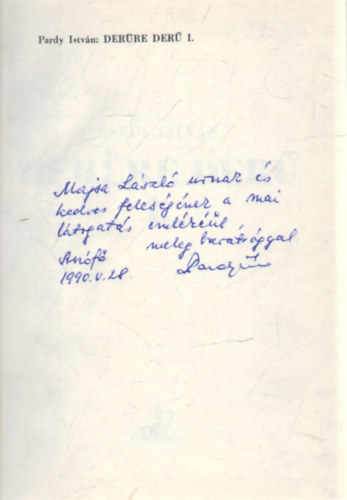 Pardy István: DERŰRE DERŰ I.
Majsa László urnak és
kedves feleségének a mai
látogatás emlékéül,
meleg barátsággal
Anófő
1990.V.28